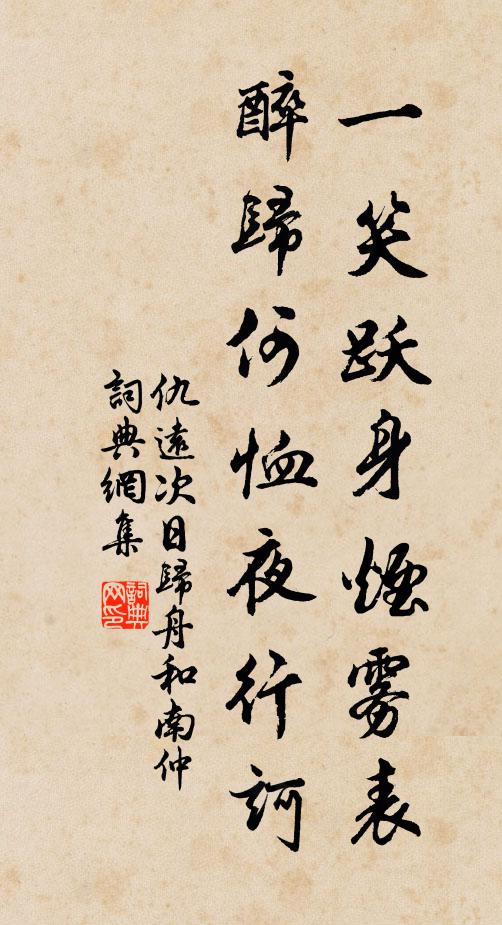 一笑跃身烟雾表
醉歸何恤夜行訶
仇遠次日歸舟和南仲
詞典網集
詞典网印